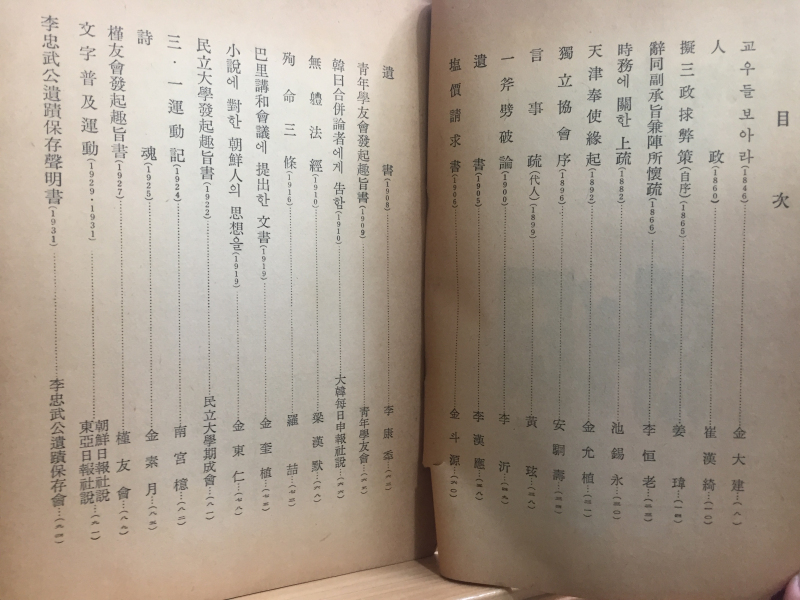 目次
교우들 보아라(1846)……金大建…(八)
人政(1860)……崔漢綺…(一〇)
擬三政捄弊策(自序)(1865)……姜瑋…(一四)
辭同副承旨兼陣所懷疏(1866)……李恒老
時務에 關한 上疏(1882)……池錫永
天津奉使緣起(1892)……金允植
獨立協會序(1896)……安駉壽
言事疏(代人)(1899)……黃玹
一斧劈破論(1900)……李沂
遺書(1905)……李漢應
塩價請求書(1905)……金斗源
遺書(1908)……李康秊
靑年學友會發起趣旨書(1909)……靑年學友會
韓日合併論者에게 告함(1910)……大韓每日申報社說
無體法經(1910)……梁漢默
殉命三條(1916)……羅喆
巴里講和會議에 提出한 文書(1919)……金奎植
小說에 對한 朝鮮人의 思想을(1919)……金東仁
民立大學發起趣旨書(1922)……民立大學期成會…(八一)
三·一運動記(1924)……南宮檍…(八二)
詩魂(1925)……金素月…(八五)
槿友會發起趣旨書(1927)……槿友會…(八九)
文字普及運動(1929·1931)……朝鮮日報社說 東亞日報社說…(九一)
李忠武公遺蹟保存聲明書(1931)……李忠武公遺蹟保存會…(九四)